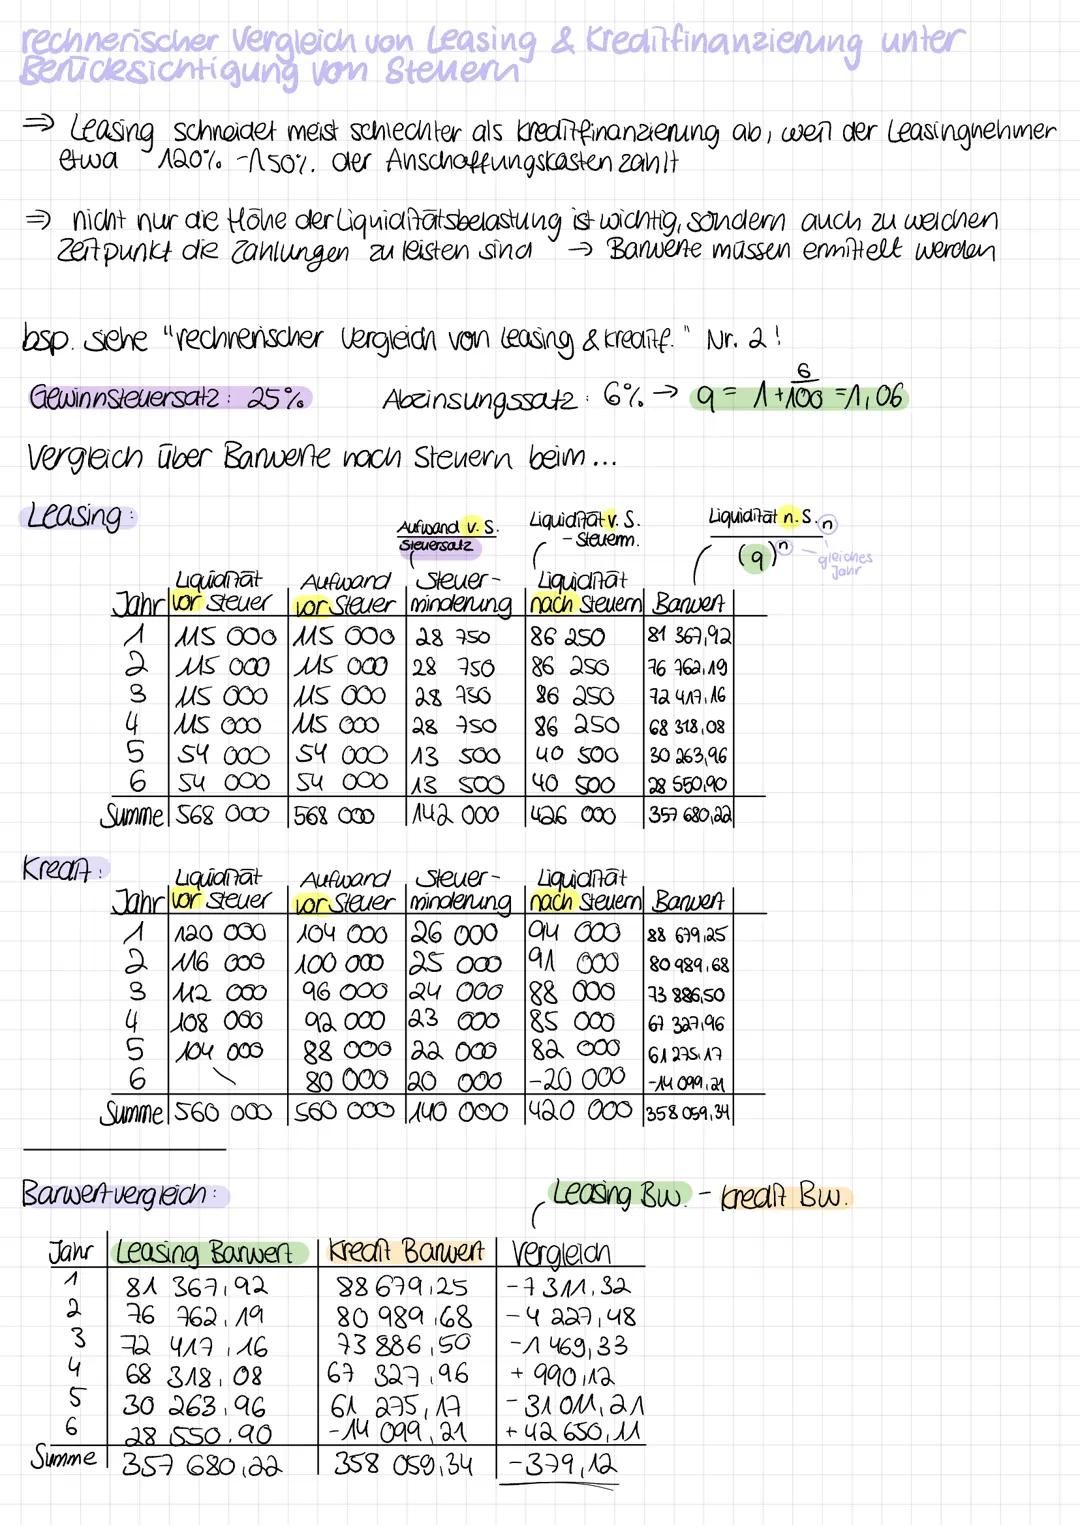 rechnerischer Vergleich von Leasing & Kreditfinanzierung unter
Berücksichtigung von Steuern
⇒ Leasing schneidet meist schlechter als Kreditfinanzierung ab, weil der Leasingnehmer
etwa 120% - 150% der Anschaffungskosten zahlt
⇒ nicht nur die Höhe der Liquiditätsbelastung ist wichtig, sondern auch zu welchen
Zeitpunkt die Zahlungen zu leisten sind → Barwerte müssen ermittelt werden
bsp. siehe "rechnerischer Vergleich von Leasing & Kreditf." Nr. 2!
Gewinnsteuersatz: 25% Abzinsungssatz: 6% → q = 1 + 6/100 = 1,06
Vergleich über Barwerte nach Steuern beim...
Leasing:
Aufwand v. S. Liquidität v. S. Liquidität n. S. n
Steuersatz - Steuerm. (q)^n - gleiches
Jahr
Liquidität Aufwand Steuer- Liquidität
Jahr vor Steuer vor Steuer minderung nach Steuern Barwert
1 115 000 115 000 28 750 86 250 81 367,92
2 115 000 115 000 28 750 86 250 76 762,19
3 115 000 115 000 28 750 86 250 72 417,16
4 115 000 115 000 28 750 86 250 68 318,08
5 54 000 54 000 13 500 40 500 30 263,96
6 54 000 54 000 13 500 40 500 28 550,90
Summe 568 000 568 000 142 000 426 000 357 680,22
Kredit:
Liquidität Aufwand Steuer- Liquidität
Jahr vor Steuer vor Steuer minderung nach Steuern Barwert
1 120 000 104 000 26 000 94 000 88 679,25
2 116 000 100 000 25 000 91 000 80 989,68
3 112 000 96 000 24 000 88 000 73 886,50
4 108 000 92 000 23 000 85 000 67 327,96
5 104 000 88 000 22 000 82 000 61 275,17
6 \ 80 000 20 000 -20 000 -14 099,21
Summe 560 000 560 000 140 000 420 000 358 059,34
Barwertvergleich:
Leasing Bw. - Kredit Bw.
Jahr Leasing Barwert Kredit Barwert Vergleich
1 81 367,92 88 679,25 -7 311,32
2 76 762,19 80 989,68 -4 227,48
3 72 417,16 73 886,50 -1 469,33
4 68 318,08 67 327,96 + 990,12
5 30 263,96 61 275,17 -31 011,21
6 28 550,90 -14 099,21 + 42 650,11
Summe 357 680,22 358 059,34 -379,12